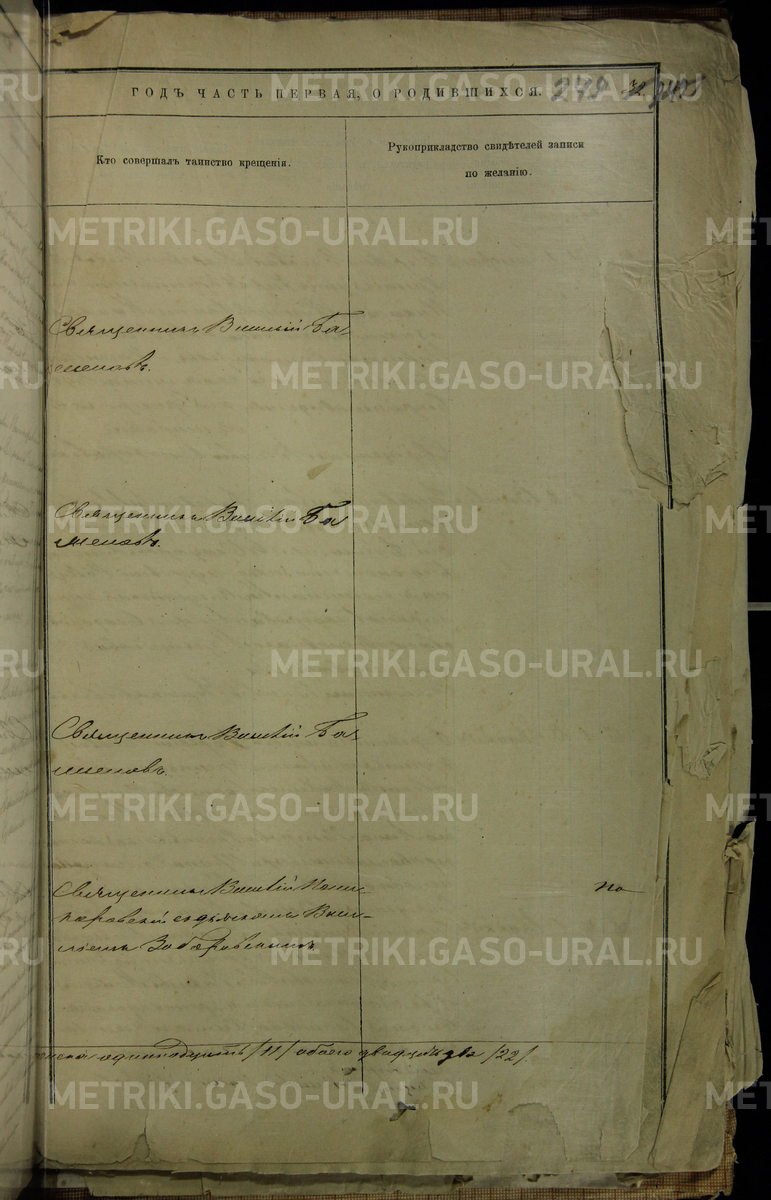 ГОДЪ ЧАСТЬ ПЕРВАЯ, О РОДИВШИХСЯ. 279
Кто совершалъ таинство крещенія.
Рукоприкладство свидѣтелей записи
по желанію.
Священникъ Василій Ба-
женовъ.
Священникъ Василій Ба
женовъ.
Священникъ Василій Ба-
женовъ.
Священникъ Василій
съ дьякономъ Васи-
ліемъ
По
одиннадцать /11/ обоего двадцать два /22/.
METRIKI.GASO-URAL.RU